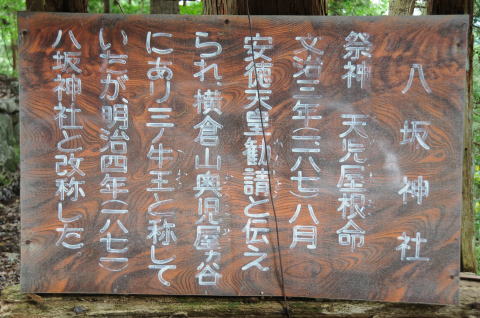 八坂神社
祭神　天児屋根命
文治三年（一一八七）八月
安徳天皇勧請と伝え
られ横倉山奥児屋ヵ谷
にあり三ノ牛王と称して
いたが、明治四年（一八七一）
八坂神社と改称した